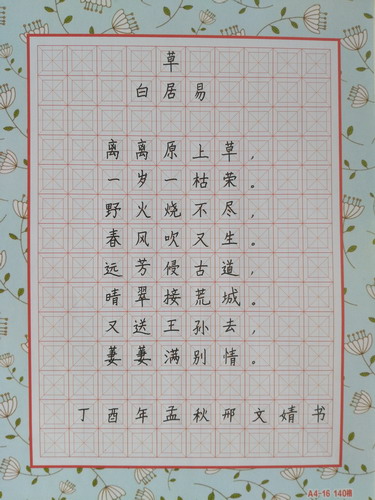 草
白居易
离离原上草，
一岁一枯荣。
野火烧不尽，
春风吹又生。
远芳侵古道，
晴翠接荒城。
又送王孙去，
萋萋满别情。
丁酉年孟秋邢文婧书
A4-16 140格